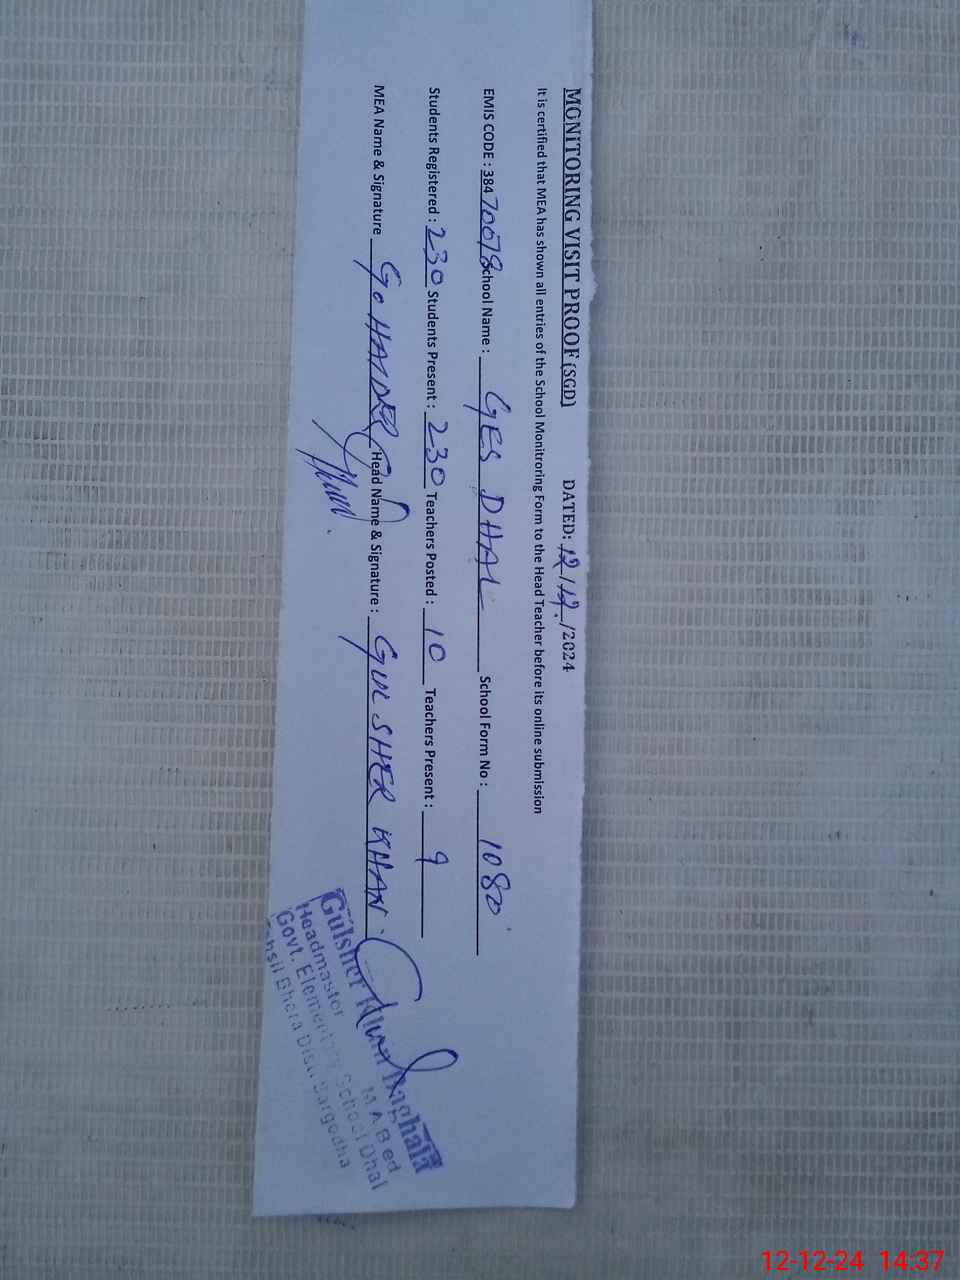 MONITORING VISIT PROOF (SGD) DATED: 12/12/2024
It is certified that MEA has shown all entries of the School Monitroring Form to the Head Teacher before its online submission
EMIS CODE : 38470078 School Name : GES DHAL School Form No : 1080
Students Registered : 230 Students Present : 230 Teachers Posted : 10 Teachers Present : 9
MEA Name & Signature Head Name & Signature : GUL SHER KHAN
Gulsher Khan
M A B ed
Headmaster
Govt. Elementary School Dhal
Tehsil Bhera Distt Sargodha
12-12-24 14:37